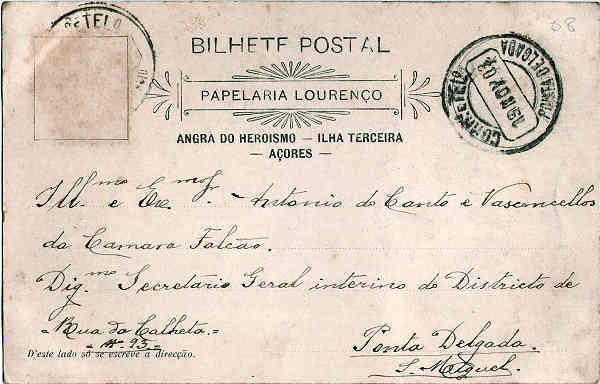 68
BILHETE POSTAL
PAPELARIA LOURENÇO
ANGRA DO HEROISMO — ILHA TERCEIRA
— AÇORES —
PONTA DELGADA
19 NOV 04
CORR. E TELO
R. E TELO
Ill.mo e Exc.mo Snr. Antonio do Canto e Vasconcellos
da Camara Falcão.
Dig.mo Secretario Geral interino do Districto de
= Rua da Calheta. =
= Nº 93. =
Ponta Delgada.
S. Miguel.
D'este lado só se escreve a direcção.